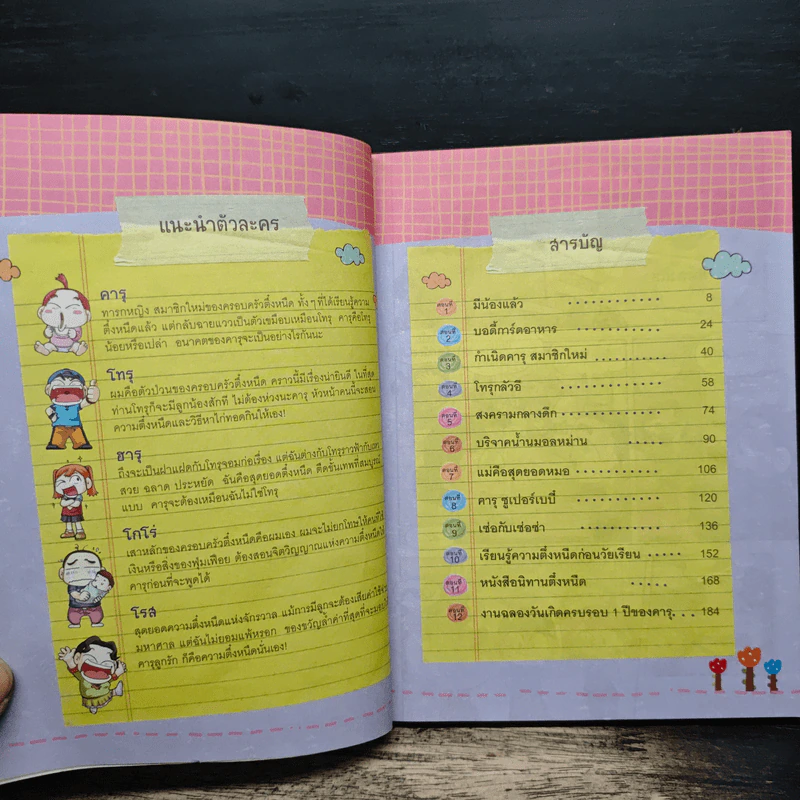 แนะนำตัวละคร
คารุ
ทารกหญิง สมาชิกใหม่ของครอบครัวตึ๋งหนืด ทั้งๆ ที่ได้เรียนรู้ความ
ตึ๋งหนืดแล้ว แต่กลับฉายแววเป็นตัวเขมือบเหมือนโทรุ คารุคือโทรุ
น้อยหรือเปล่า อนาคตของคารุจะเป็นอย่างไรกันนะ
โทรุ
ผมคือตัวป่วนของครอบครัวตึ๋งหนืด คราวนี้มีเรื่องน่ายินดี ในที่สุด
ท่านโทรุก็จะมีลูกน้องสักที ไม่ต้องห่วงนะคารุ หัวหน้าคนนี้จะสอน
ความตึ๋งหนืดและวิธีหาไก่ทอดกินให้เอง!
ฮารุ
ถึงจะเป็นฝาแฝดกับโทรุจอมก่อเรื่อง แต่ฉันต่างกับโทรุราวฟ้ากับเหว
สวย ฉลาด ประหยัด ฉันคือสุดยอดตึ๋งหนืด ตืดขั้นเทพที่สมบูรณ์
แบบ คารุจะต้องเหมือนฉันไม่ใช่โทรุ
โกโร่
เสาหลักของครอบครัวตึ๋งหนืดคือผมเอง ผมจะไม่ยกโทษให้คนที่ใช้
เงินหรือสิ่งของฟุ่มเฟือย ต้องสอนจิตวิญญาณแห่งความตึ๋งหนืดให้
คารุก่อนที่จะพูดได้
โรส
สุดยอดความตึ๋งหนืดแห่งจักรวาล แม้การมีลูกจะต้องเสียค่าใช้จ่าย
มหาศาล แต่ฉันไม่ยอมแพ้หรอก ของขวัญล้ำค่าที่สุดที่จะมอบให้
คารุลูกรัก ก็คือความตึ๋งหนืดนั่นเอง!
สารบัญ
ตอนที่ 1 มีน้องแล้ว ............ 8
ตอนที่ 2 บอดี้การ์ดอาหาร ........... 24
ตอนที่ 3 กำเนิดคารุ สมาชิกใหม่ ........... 40
ตอนที่ 4 โทรุกลัวอี ............ 58
ตอนที่ 5 สงครามกลางดึก ............ 74
ตอนที่ 6 บริจาคน้ำนมอลหม่าน ..... 90
ตอนที่ 7 แม่คือสุดยอดหมอ ........... 106
ตอนที่ 8 คารุ ซูเปอร์เบบี๋ ........... 120
ตอนที่ 9 เซ่อกับเซ่อซ่า ........... 136
ตอนที่ 10 เรียนรู้ความตึ๋งหนืดก่อนวัยเรียน ..... 152
ตอนที่ 11 หนังสือนิทานตึ๋งหนืด ..... 168
ตอนที่ 12 งานฉลองวันเกิดครบรอบ 1 ปีของคารุ... 184